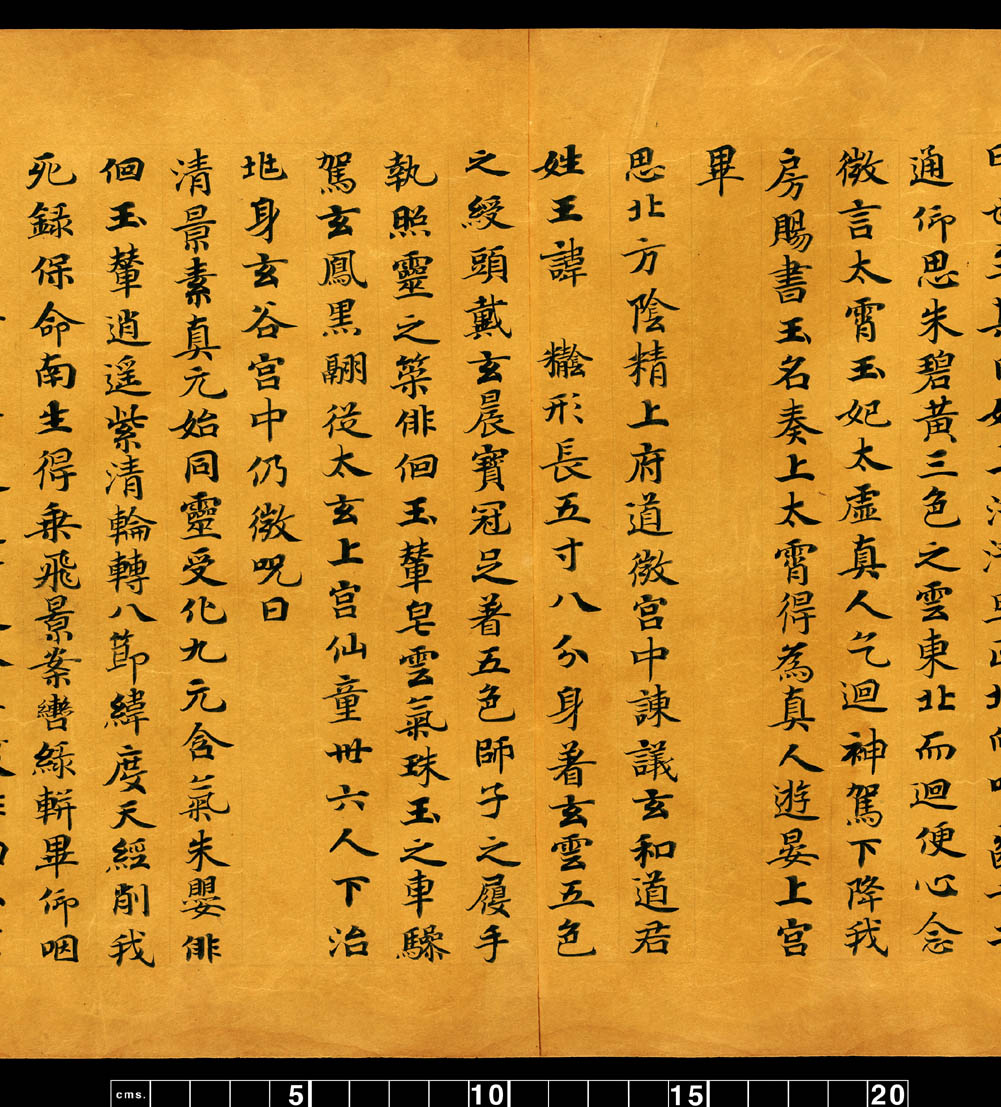 通仰思朱碧黃三色之雲東北而迴便心念
微言太霄玉妃太虛真人乞迴神駕下降我
房賜書玉名奏上太霄得為真人遊晏上宮
畢
思北方陰精上府道微宮中諫議玄和道君
姓王諱 形長五寸八分身著玄雲五色
之綬頭戴玄晨寶冠足著五色師子之履手
執照靈之築俳佪玉輦皂雲氣珠玉之車驂
駕玄鳳黑翮從太玄上宮仙童卅六人下治
兆身玄谷宮中仍微呪曰
清景素真元始同靈受化九元含氣朱嬰俳
佪玉輦逍遥紫清輪轉八節緯度天經削我
死録保命南生得乗飛景案轡緑軿畢仰咽